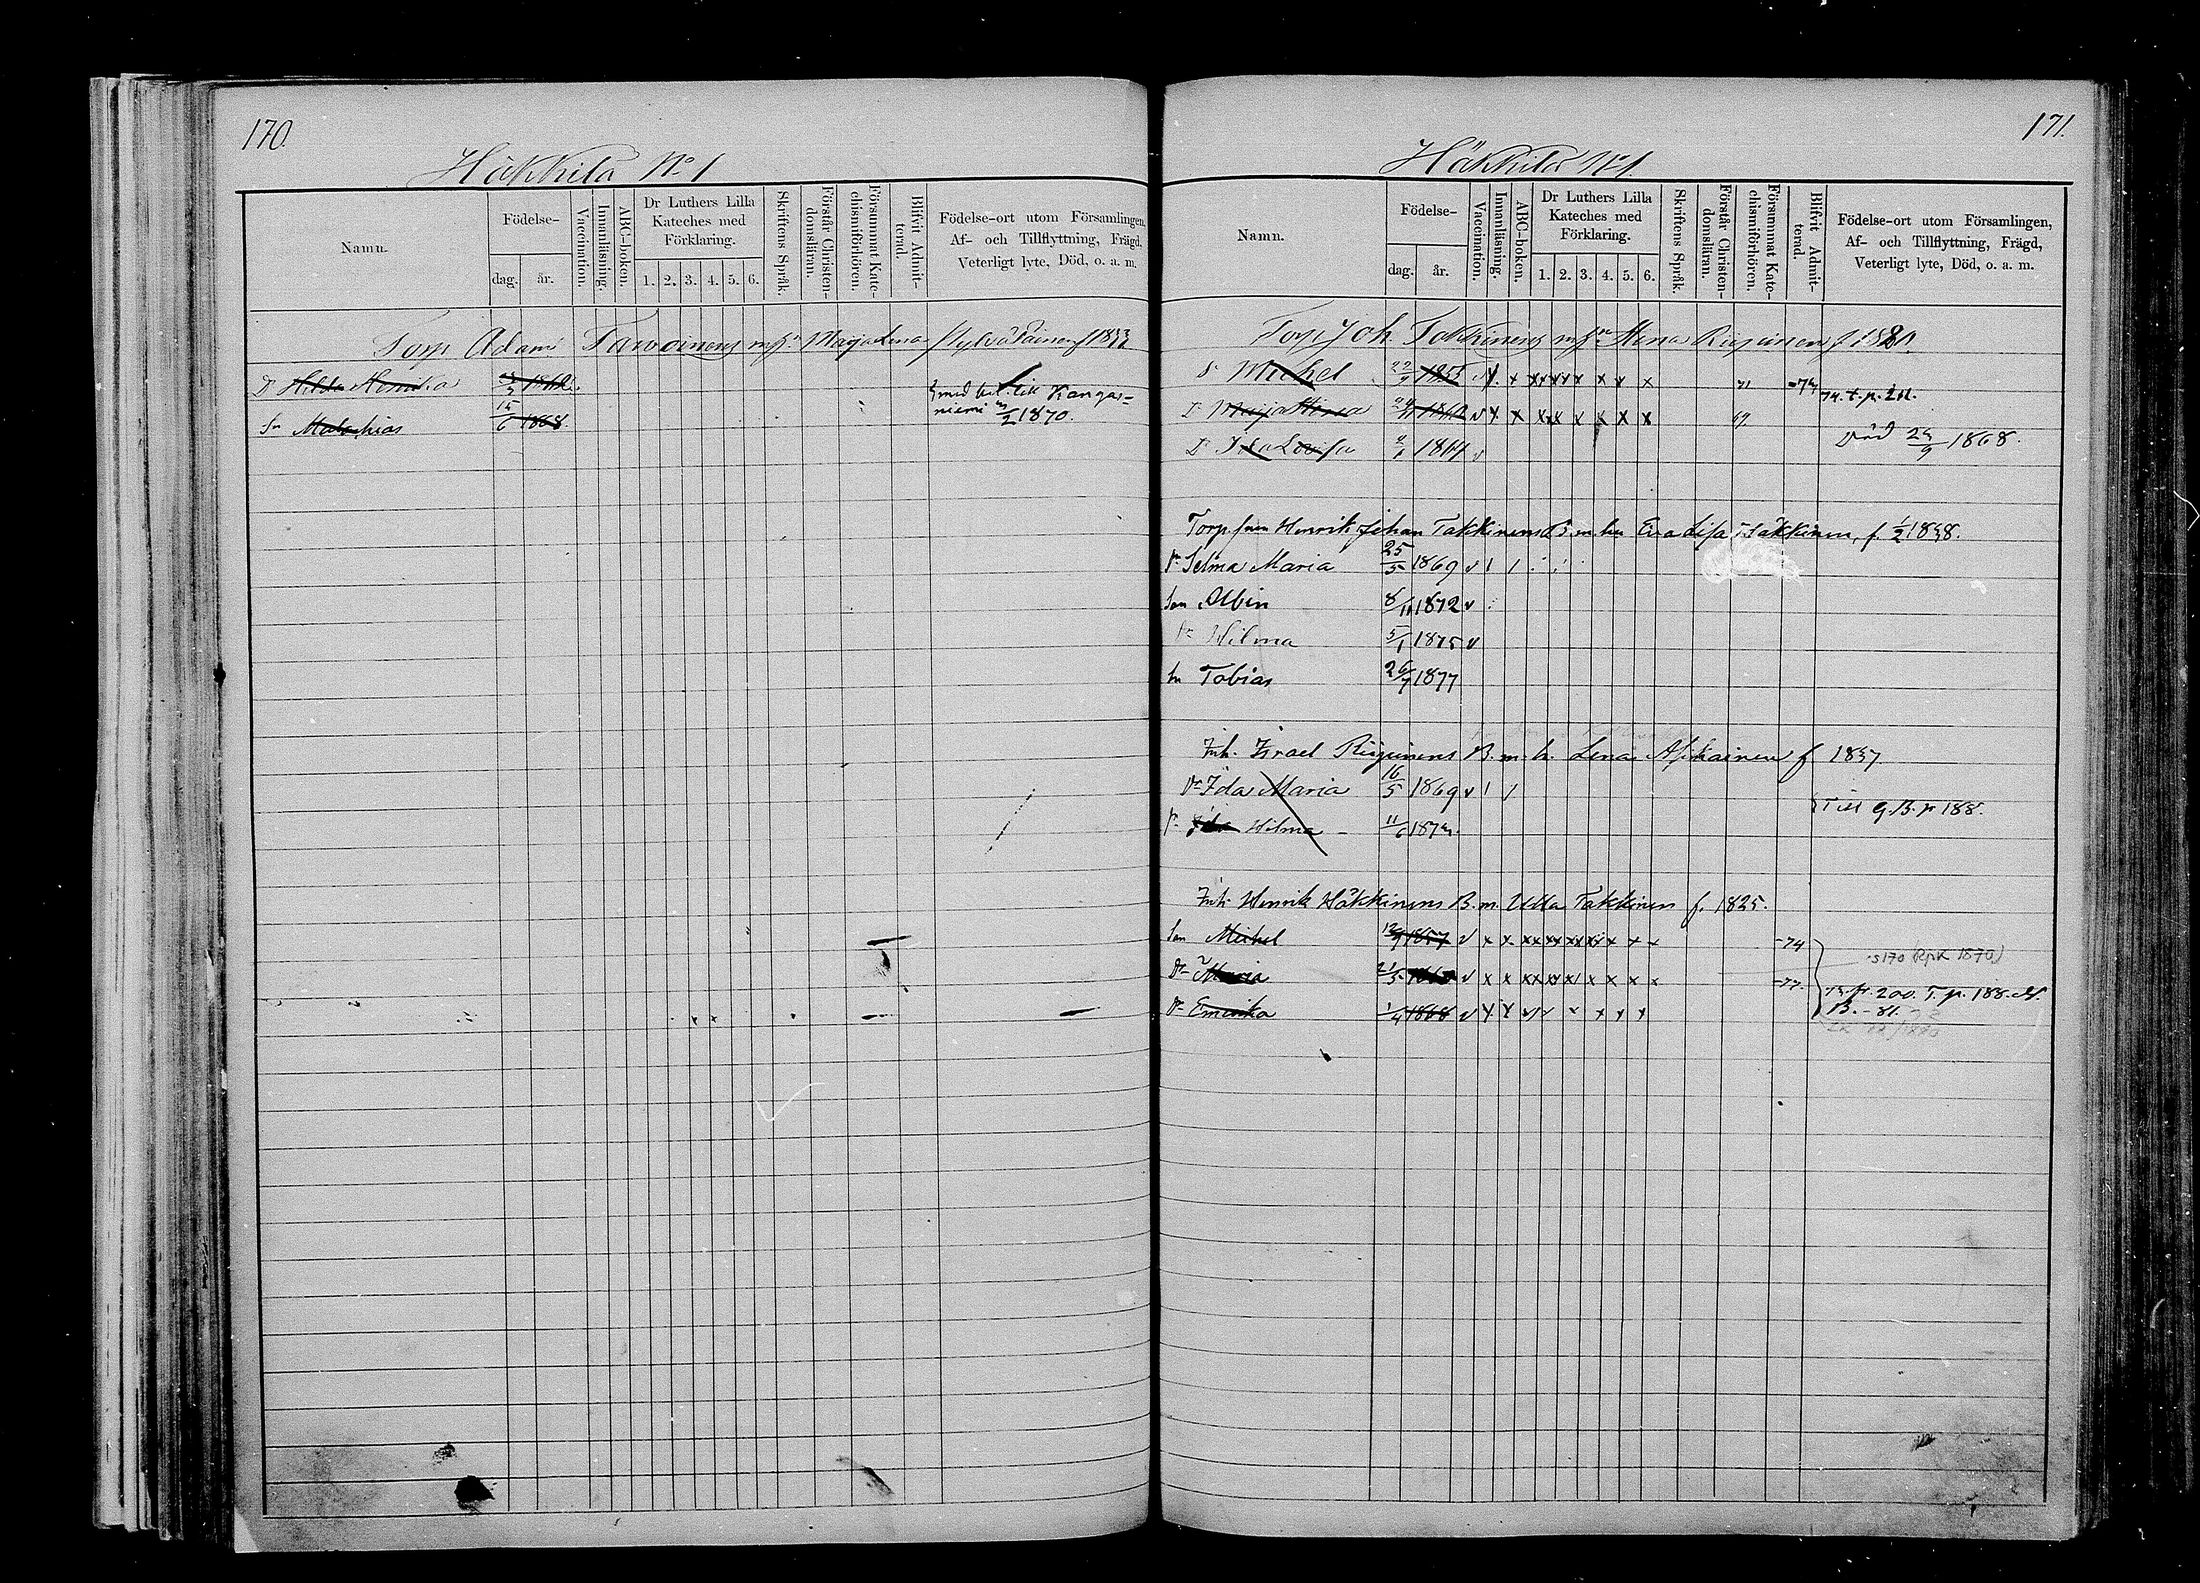 170.
Häkkilä No 1
Namn.
Födelse-
dag. år.
Vaccination.
Innanläsning.
ABC-boken.
Dr Luthers Lilla
Kateches med
Förklaring.
1. 2. 3. 4. 5. 6.
Skriftens Språk.
Förstår Christen-
domsläran.
Försummat Kate-
chismiförhören.
Blifvit Admit-
terad.
Födelse-ort utom Församlingen,
Af- och Tillflyttning, Frägd,
Veterligt lyte, Död, o. a. m.
Torp Adam Tarvainens Maja Lena f 1833
Dr Hilda
med bet. till Kangas-
niemi 1870.
Sn Mathias 15/6 1868
171.
Häkkilä No 1
Namn.
Födelse-
dag. år.
Vaccination.
Innanläsning.
ABC-boken.
Dr Luthers Lilla
Kateches med
Förklaring.
1. 2. 3. 4. 5. 6.
Skriftens Språk.
Förstår Christen-
domsläran.
Försummat Kate-
chismiförhören.
Blifvit Admit-
terad.
Födelse-ort utom Församlingen,
Af- och Tillflyttning, Frägd,
Veterligt lyte, Död, o. a. m.
Torp Joh Takkinens Stina
S. Michel 1855 v x x x x x x x x 71
Dr Maja Stina v x x x x x x x x 69
Dr Ida Lovisa v Död 1868.
Torp. sonen Henrik Johan Takkinens B. m. hu Eva Lisa Häkkinen, f. 1/2 1838.
Dr Selma Maria 25/5 1869 v
Son Albin 8/11 1872 v
Dr Wilma 5/1 1875 v
Sn Tobias 26/7 1877
Inh. Israel B. m. h. Lena f 1837
Dr Ida Maria 16/5 1869 v
Till G. B. p 188.
Dr Hilma 11/6
Inh. Henrik Häkkinens B. m. Ulla Takkinen f. 1825.
Son Michel 1857 v x x xx xx xx xx x x x -74
Dr Maria v x x x x x x x x x -77.
T. p. 188.
Dr Emerika 1/4 1868 v
B. -81.